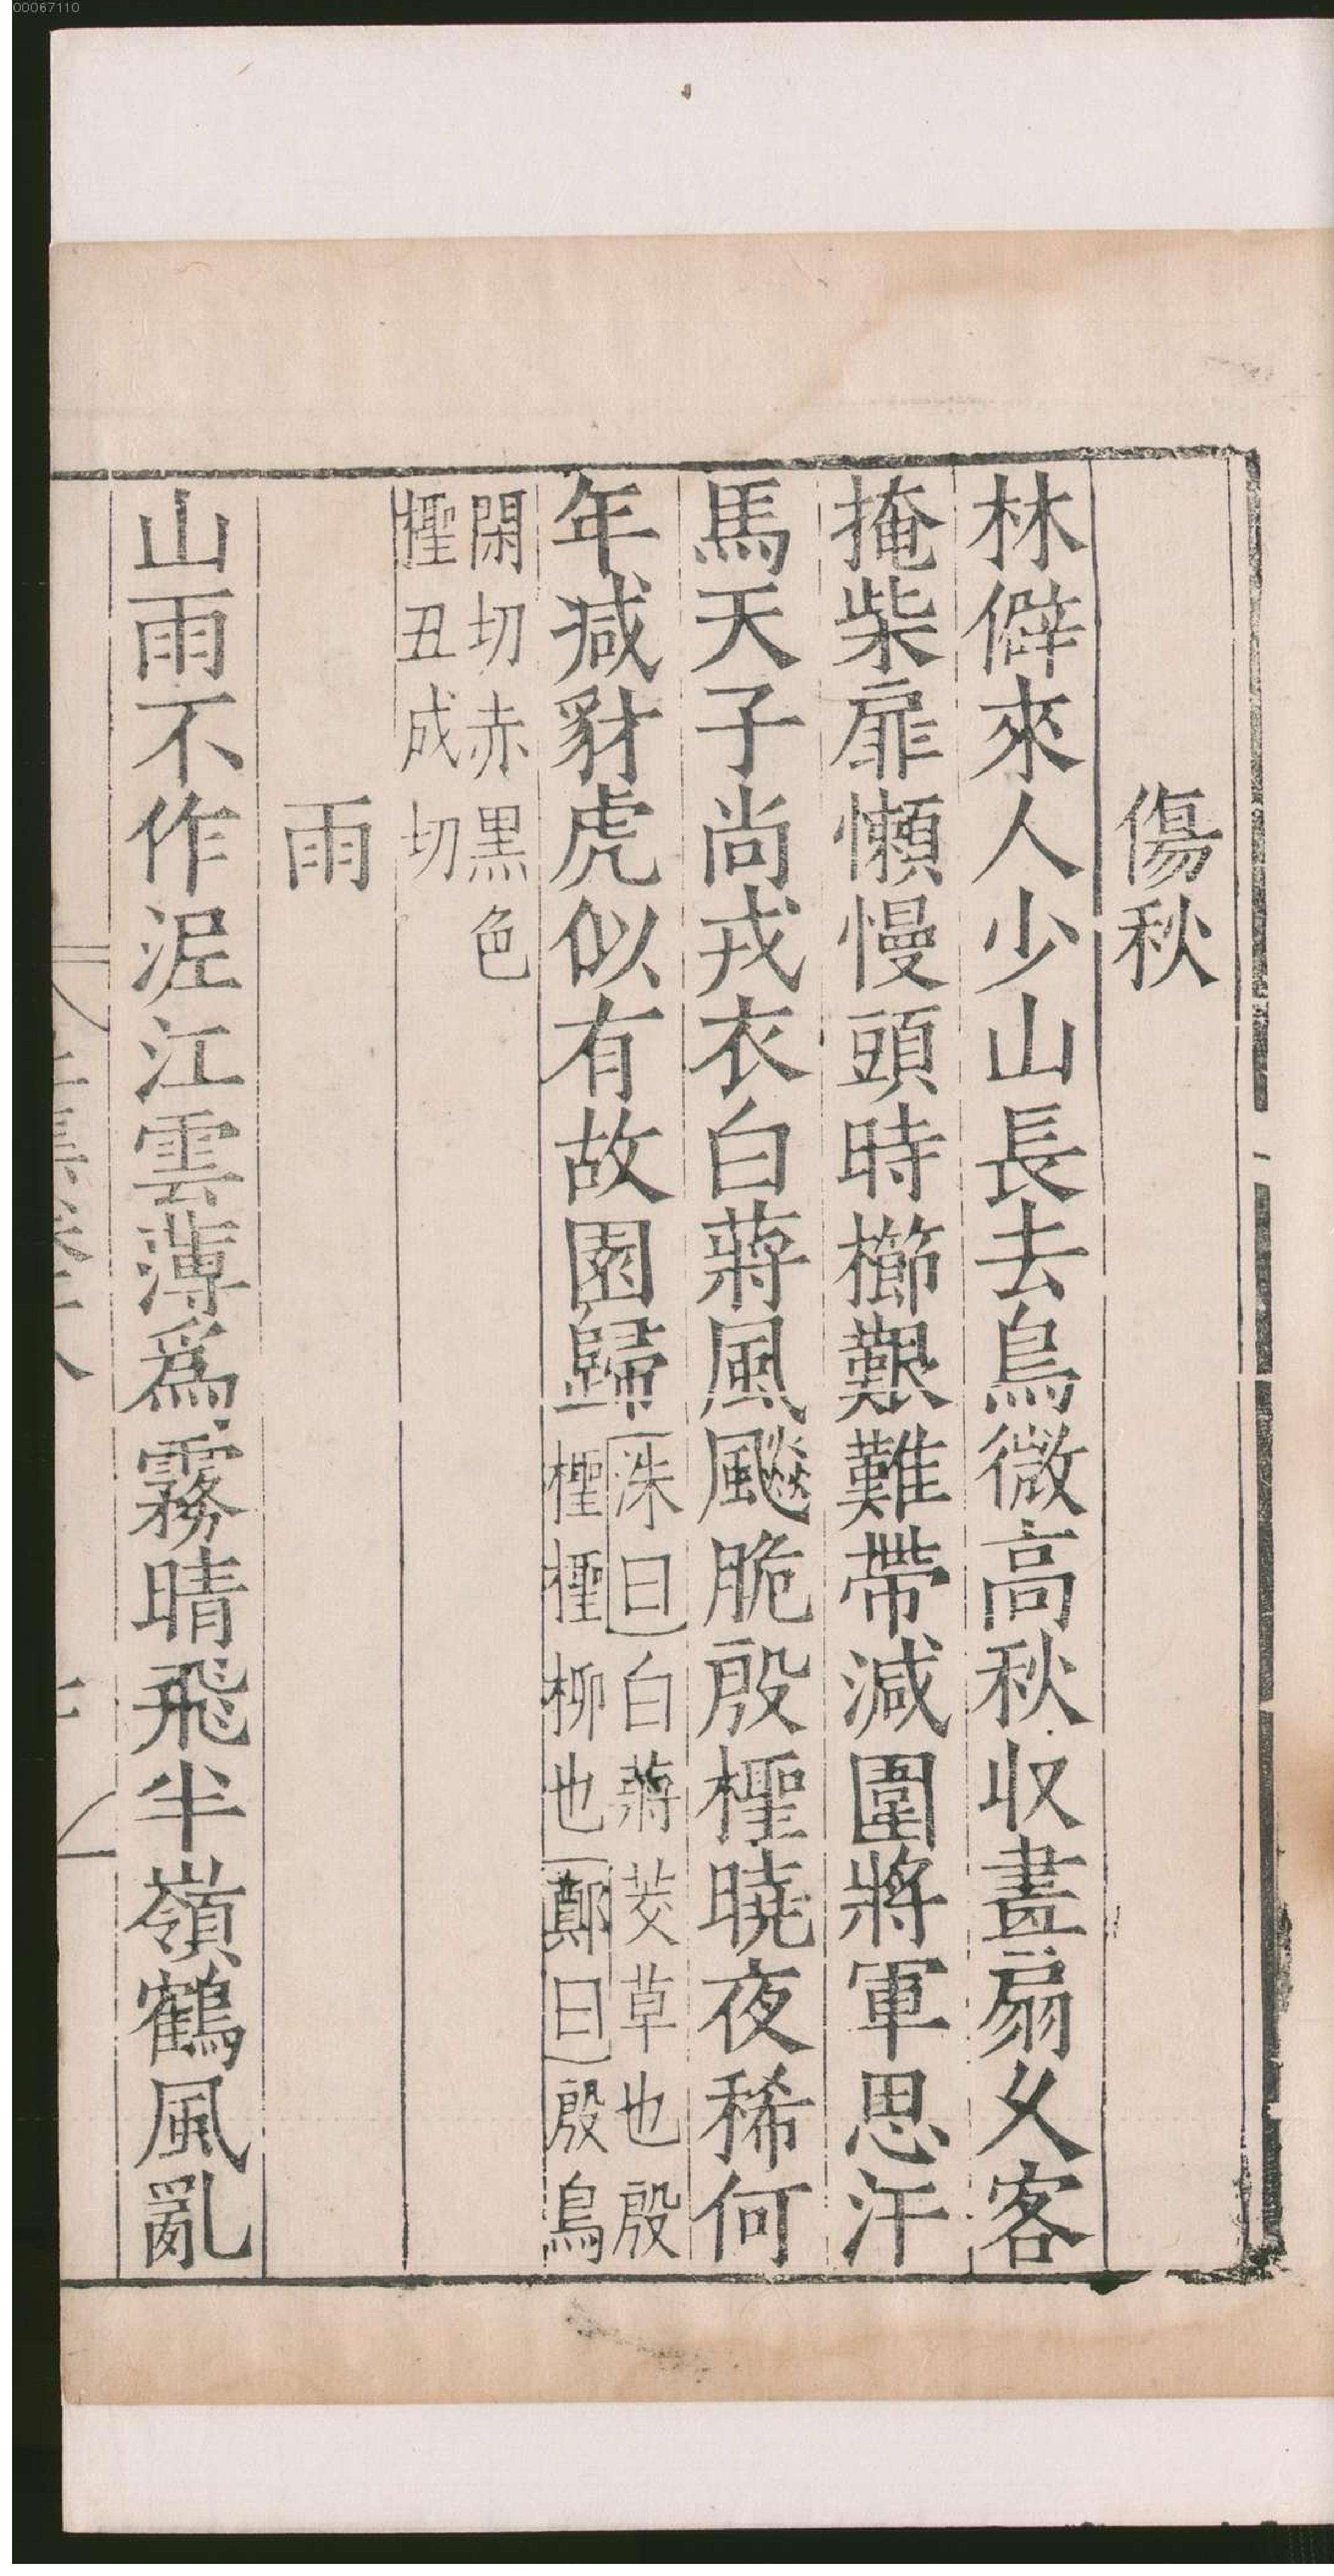 00067110
傷秋
林僻來人少山長去鳥微高秋収畫扇久客
掩柴扉懶慢頭時櫛艱難帶減圍將軍思汗
馬天子尚戎衣白蔣風飈脆殷檉曉夜稀何
年减豺虎似有故園歸洙曰白蔣茭草也殷
檉檉柳也鄭曰殷烏
閑切赤黒色
檉丑成切
雨
山雨不作泥江雲薄爲霧晴飛半嶺鶴風亂